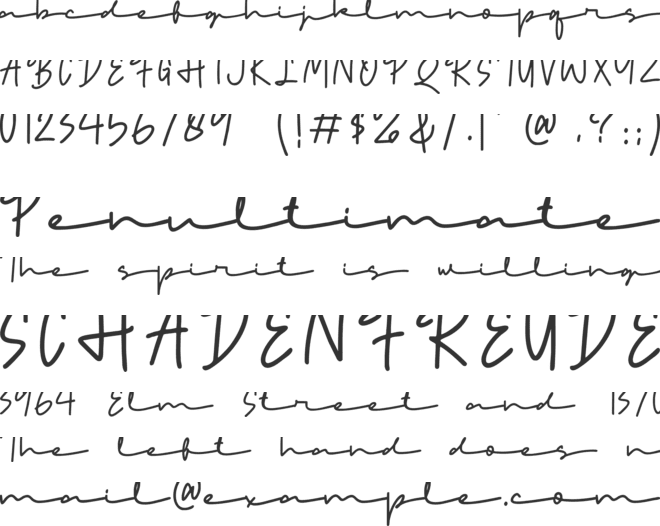 abcdefghijklmnopqrs
ABCDEFGHIJKLMNOPQRSTUVWXYZ
0123456789 (!#$%&/.| @ ,?:;)
Penultimate
The spirit is willing
SCHADENFREUDE
5964 Elm Street and 15/
The left hand does n
mail@example.com